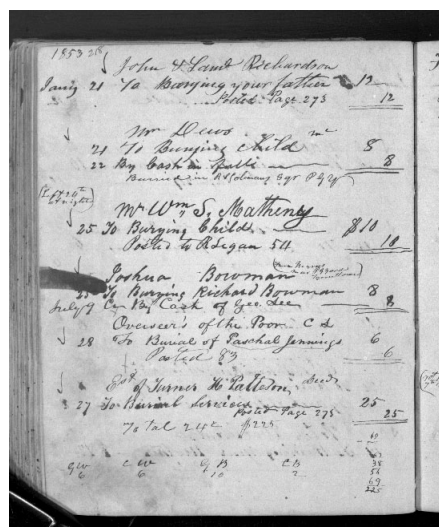 1853
John & Saml Richardson
Jany 21 To Burying your father 12
Posted Page 273 12
Mr Dews
21 To Burying Child 8
22 By Cash in full 8
Buried in
Mr Wm S. Matheny
25 To Burying Child $10
Posted to 54 10
Joshua Bowman
25 To Burying Richard Bowman 8
July 9 Cr By Cash of Geo. Lee 8
Overseer's of the Poor C L
28 To Burial of Paschal Jennings 6
Posted 83 6
Est of Turner H Patteson Decd
27 To Burial Services 25
Posted Page 275 25
Total 24 $225
G W C W G B C B
6 6 10 2
38
54
69
225